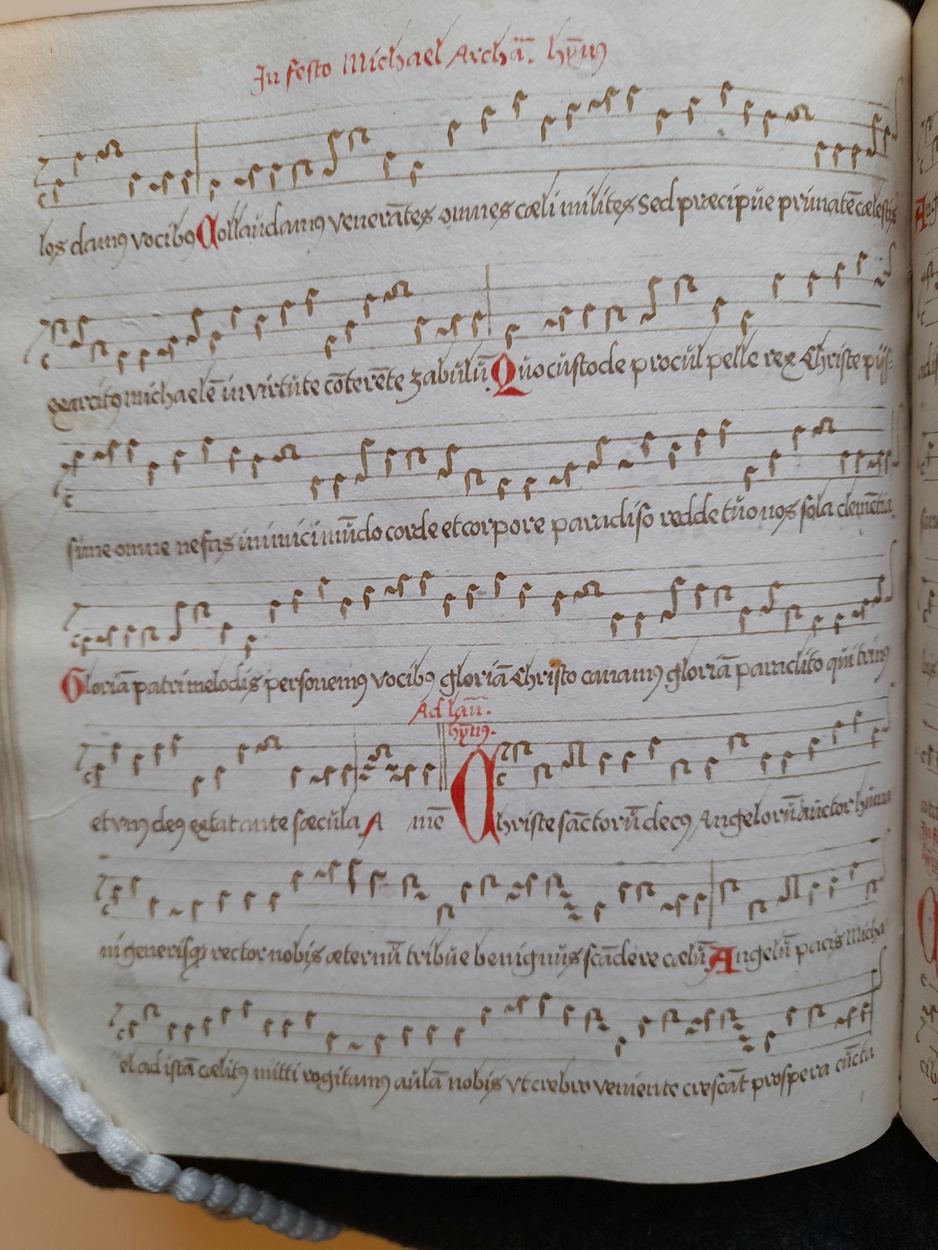 In festo Michael Archā. hȳmꝰ
los damꝰ vocibꝰ Collaudamꝰ venerātes omnes cæli milites Sed præcipue primatē cælestis
exercitꝰ Michaelē in virtute cōterēte zabulū Quo custode procul pelle rex Christe pijs-
sime omne nefas inimici mūdo corde et corpore paradiso redde tuo nos sola clemētia
Gloriā patri melodis personemꝰ vocibꝰ gloriā Christo canamꝰ gloriā paraclito qui trinꝰ
Ad lau.
hȳmꝰ.
et vnꝰ deꝰ extat ante sæcula A mē Christe sāctorū decꝰ Angelorū auctor huma
ni generisqꝫ rector nobis æternū tribue benignus scādere cælū Angelū pacis Micha
el ad istā cælitꝰ mitti rogitamꝰ aulā nobis vt crebro veniente crescāt prospera cūcta